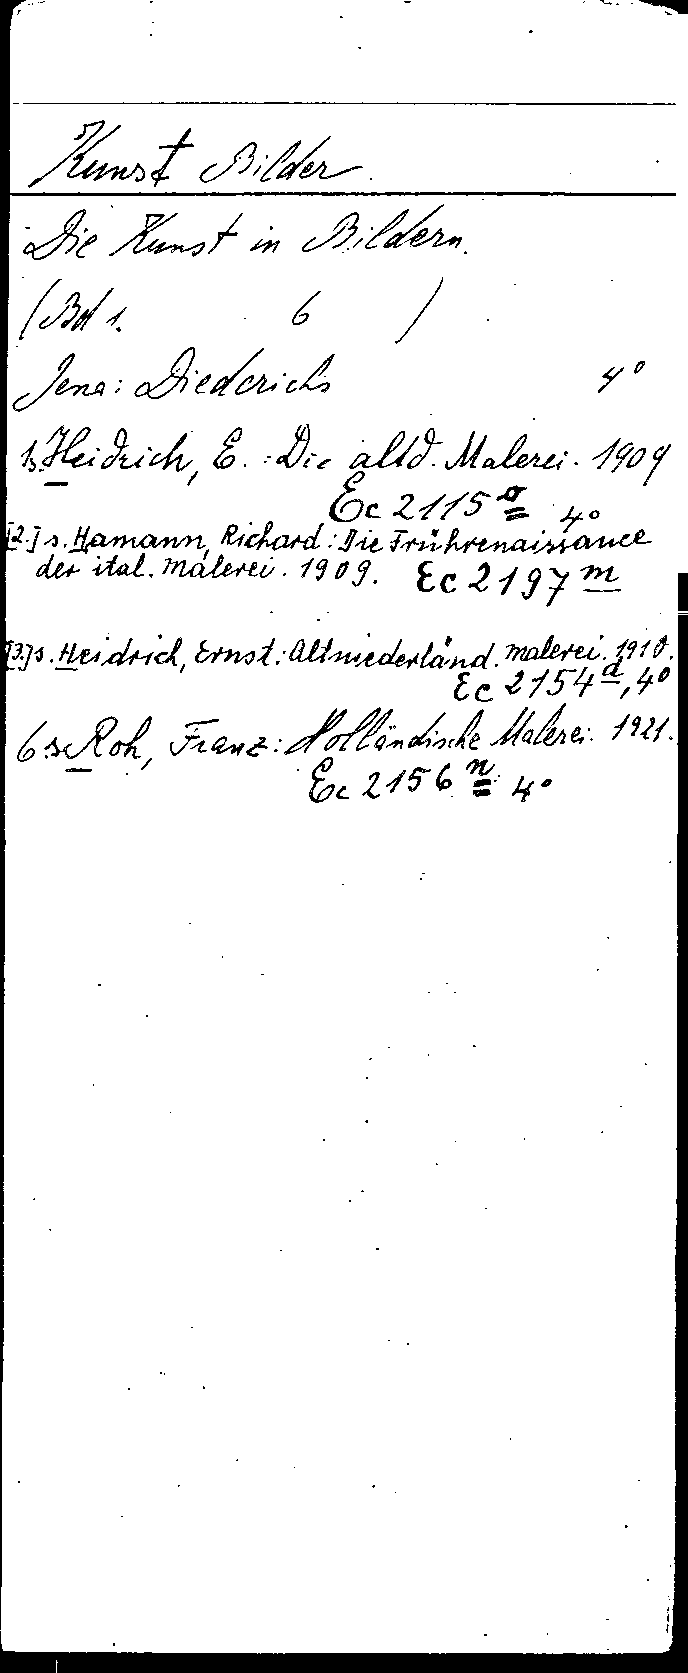 Kunst Bilder.
Die Kunst in Bildern.
(Bd 1. 6 )
Jena: Diederichs 4°
1. s. Heidrich, E.: Die altd. Malerei. 1909
Ec 2115 o 4°
[2.] s. Hamann, Richard: Die Frührenaissance
der ital. Malerei. 1909. Ec 2197 m
[3.] s. Heidrich, Ernst: Altniederländ. Malerei. 1910.
Ec 2154 a, 4°
6. s. Roh, Franz: Holländische Malerei. 1921.
Ec 2156 n 4°